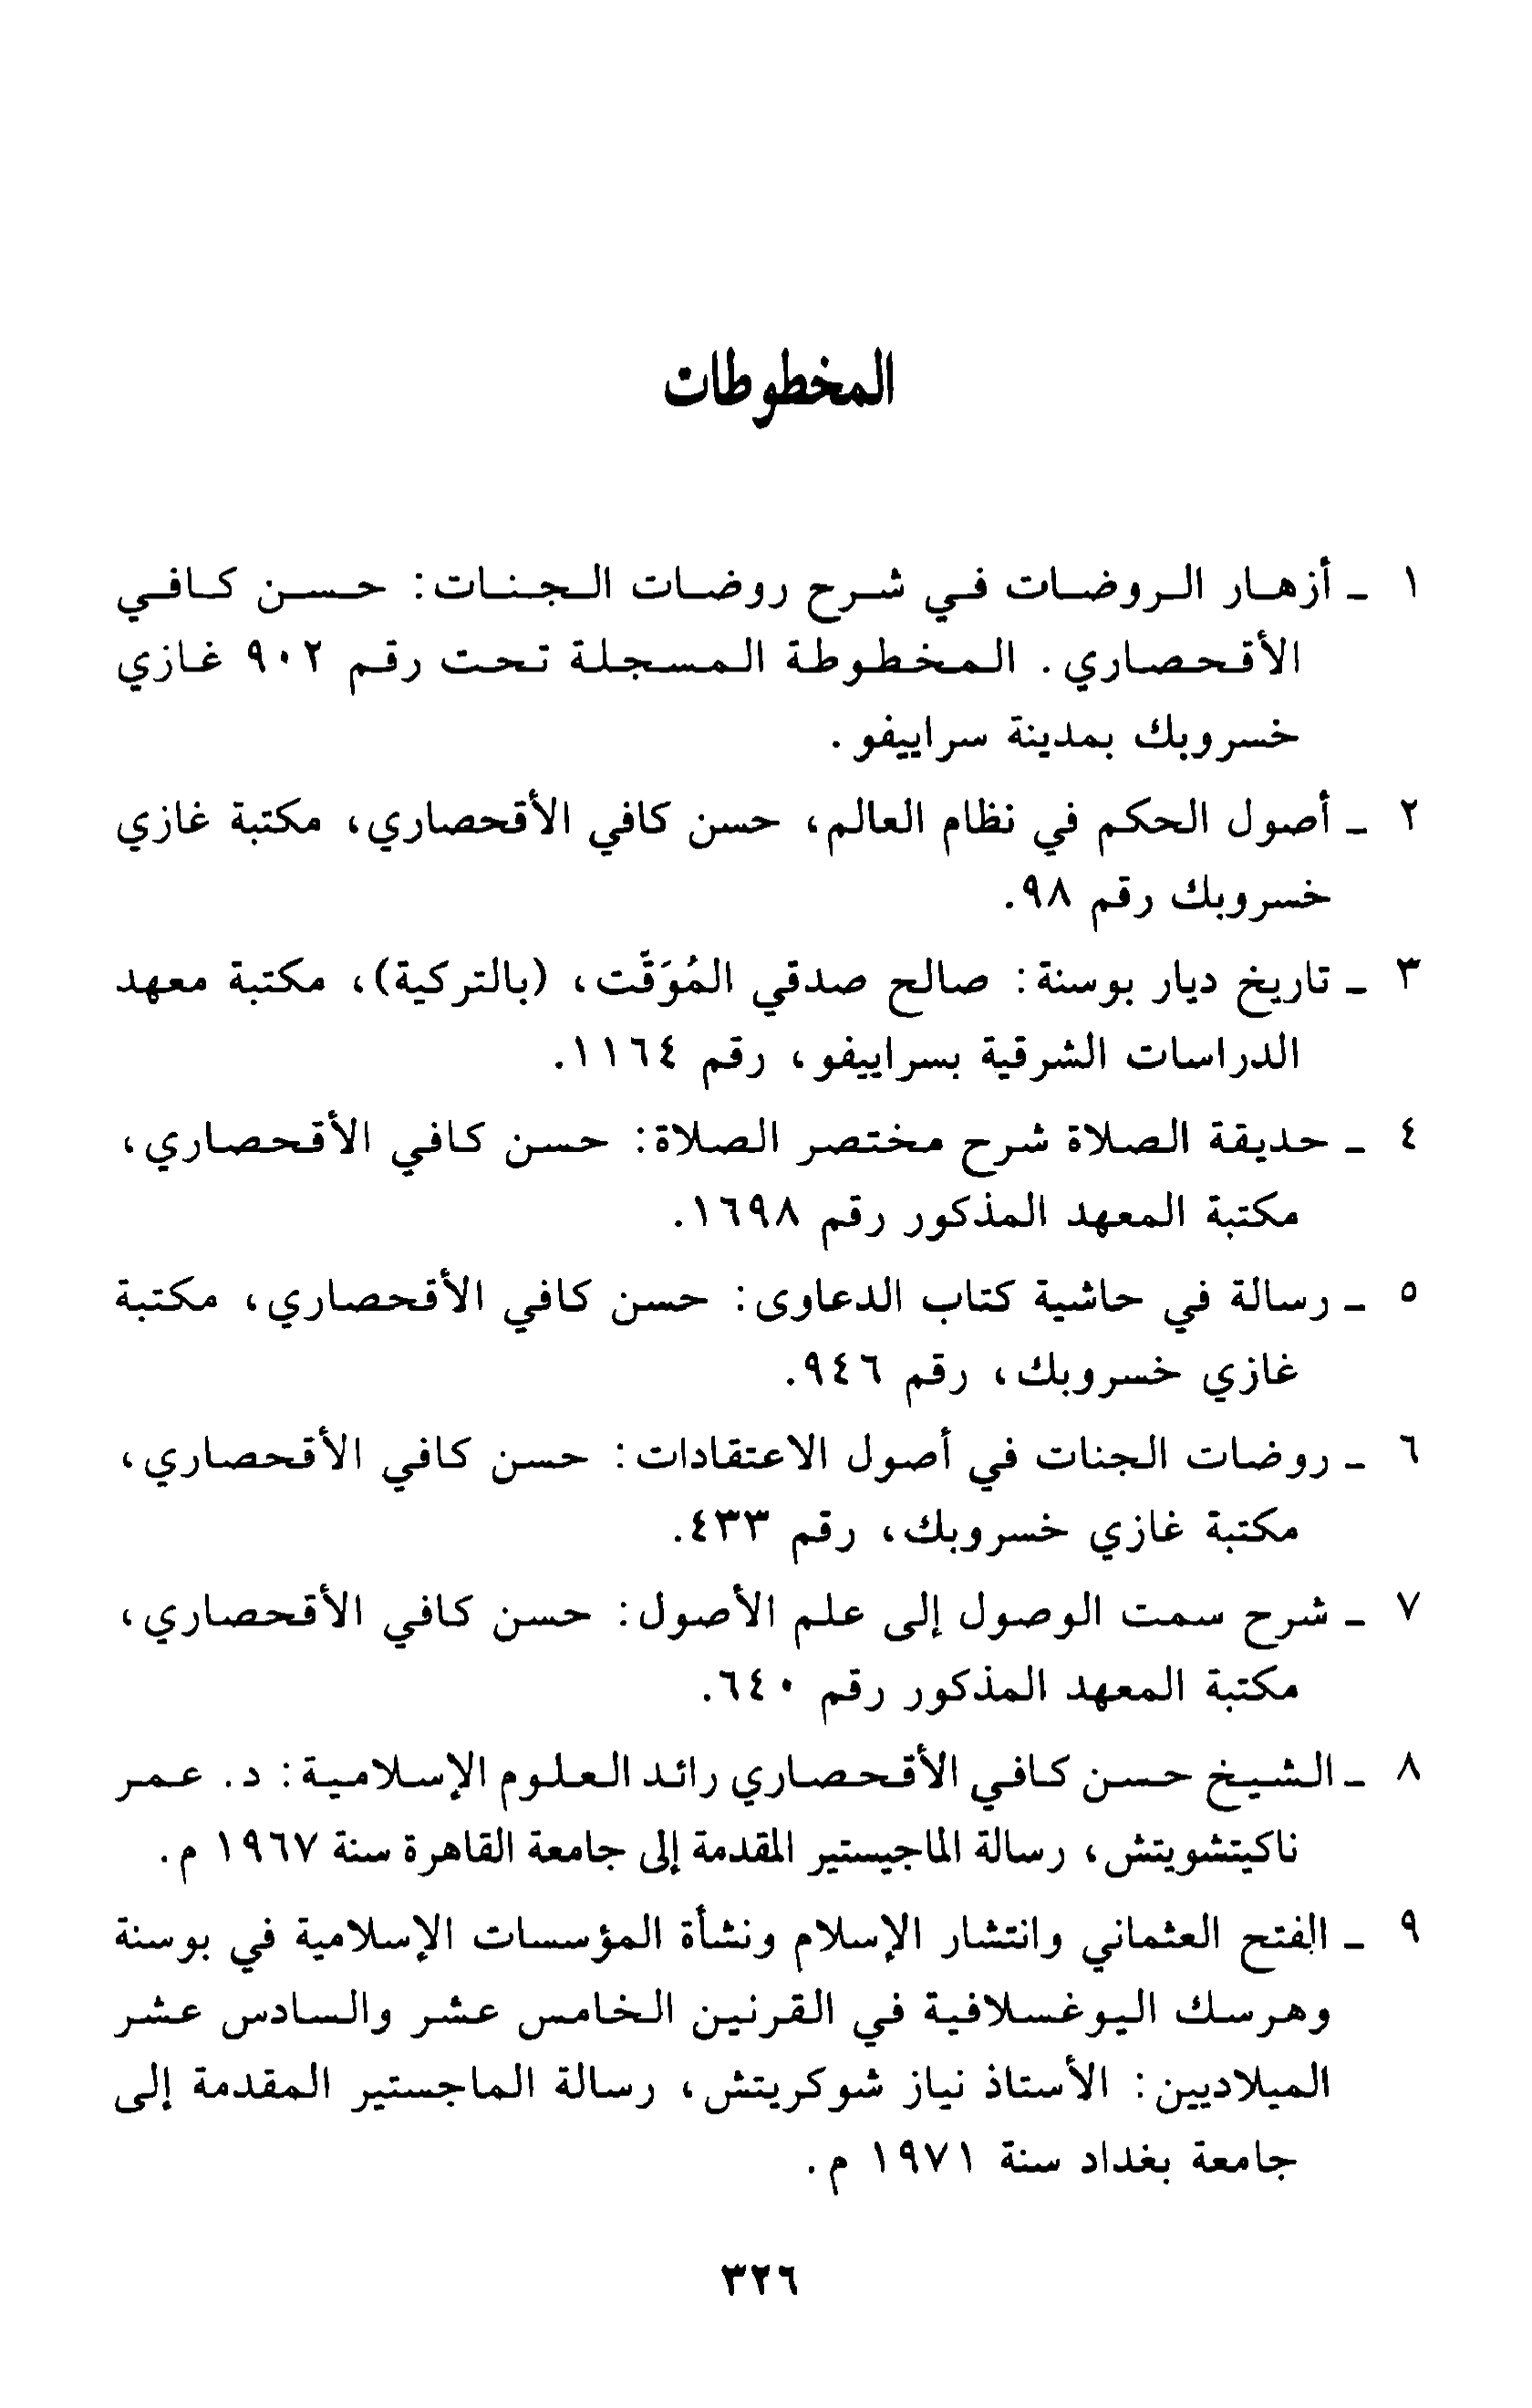 المخطوطات
١ - أزهار الروضات في شرح روضات الجنات: حسن كافي
الأقحصاري. المخطوطة المسجلة تحت رقم ٩٠٢ غازي
خسروبك بمدينة سراييفو.
٢ - أصول الحكم في نظام العالم، حسن كافي الأقحصاري، مكتبة غازي
خسروبك رقم ٩٨.
٣ - تاريخ ديار بوسنة: صالح صدقي المُوَقَّت، (بالتركية)، مكتبة معهد
الدراسات الشرقية بسراييفو، رقم ١١٦٤.
٤ - حديقة الصلاة شرح مختصر الصلاة: حسن كافي الأقحصاري،
مكتبة المعهد المذكور رقم ١٦٩٨.
٥ - رسالة في حاشية كتاب الدعاوى: حسن كافي الأقحصاري، مكتبة
غازي خسروبك، رقم ٩٤٦.
٦ - روضات الجنات في أصول الاعتقادات: حسن كافي الأقحصاري،
مكتبة غازي خسروبك، رقم ٤٣٣.
٧ - شرح سمت الوصول إلى علم الأصول: حسن كافي الأقحصاري،
مكتبة المعهد المذكور رقم ٦٤٠.
٨ - الشيخ حسن كافي الأقحصاري رائد العلوم الإسلامية: د. عمر
ناكيتشويتش، رسالة الماجيستير المقدمة إلى جامعة القاهرة سنة ١٩٦٧ م.
٩ - الفتح العثماني وانتشار الإسلام ونشأة المؤسسات الإسلامية في بوسنة
وهرسك اليوغسلافية في القرنين الخامس عشر والسادس عشر
الميلاديين: الأستاذ نياز شوكريتش، رسالة الماجستير المقدمة إلى
جامعة بغداد سنة ١٩٧١ م.
٣٢٦